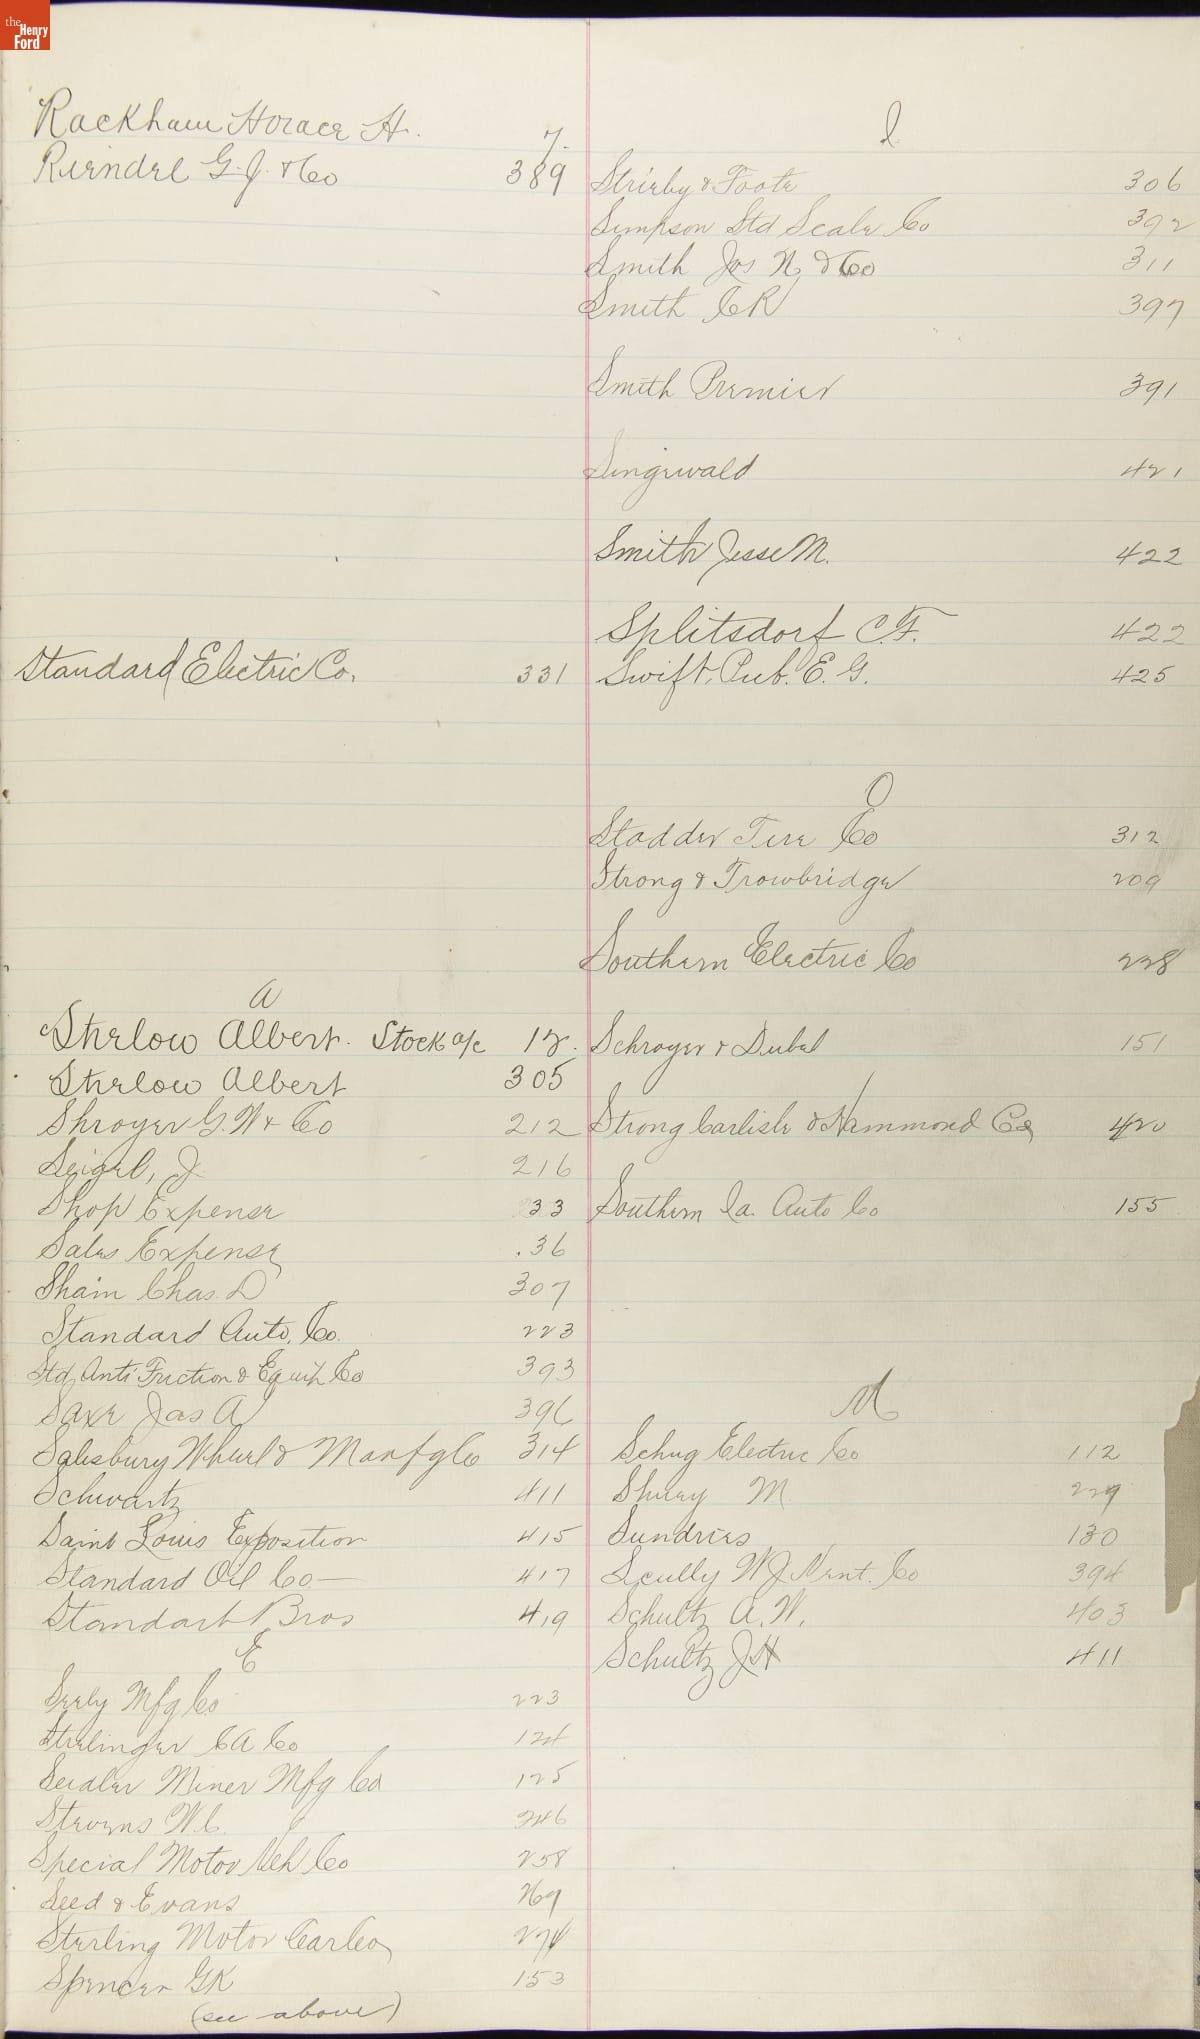 the Henry Ford
Rackham Horace H. 7.
Riendel G. J. & Co 389
Standard Electric Co. 331
A
Strelow Albert. Stock a/c 12.
Strelow Albert 305
Shroyer G. W & Co 212
Seigel, J. 216
Shop Expense 33
Sales Expense .36
Shain Chas. D 307
Standard Auto. Co. 223
Std Anti Friction & Equip Co 393
Saxe Jas A 396
Salisbury Wheel & Manfg Co 314
Schwartz 411
Saint Louis Exposition 415
Standard Oil Co— 417
Standart Bros 419
E
Seely Mfg Co 223
Strelinger C A Co 124
Seidler Miner Mfg Co 125
Stevens W. C. 246
Special Motor Veh Co 258
Seed & Evans 269
Sterling Motor Car Co 274
Spencer G K 153
(see above)
I
Strieby & Foote 306
Simpson Std Scale Co 392
Smith Jos N. & Co 311
Smith C R 397
Smith Premier 391
Singewald 421
Smith Jesse M. 422
Splitsdorf C. F. 422
Swift, Pub. E. G. 425
O
Stadder Tire Co 312
Strong & Trowbridge 209
Southern Electric Co 228
Schroyer & Dubel 151
Strong Carlisle & Hammond Co 420
Southern Ca. Auto Co 155
M
Schug Electric Co 112
M 229
Sundries 130
Scully W J Co 394
Schultz A. W. 403
Schultz J H 411